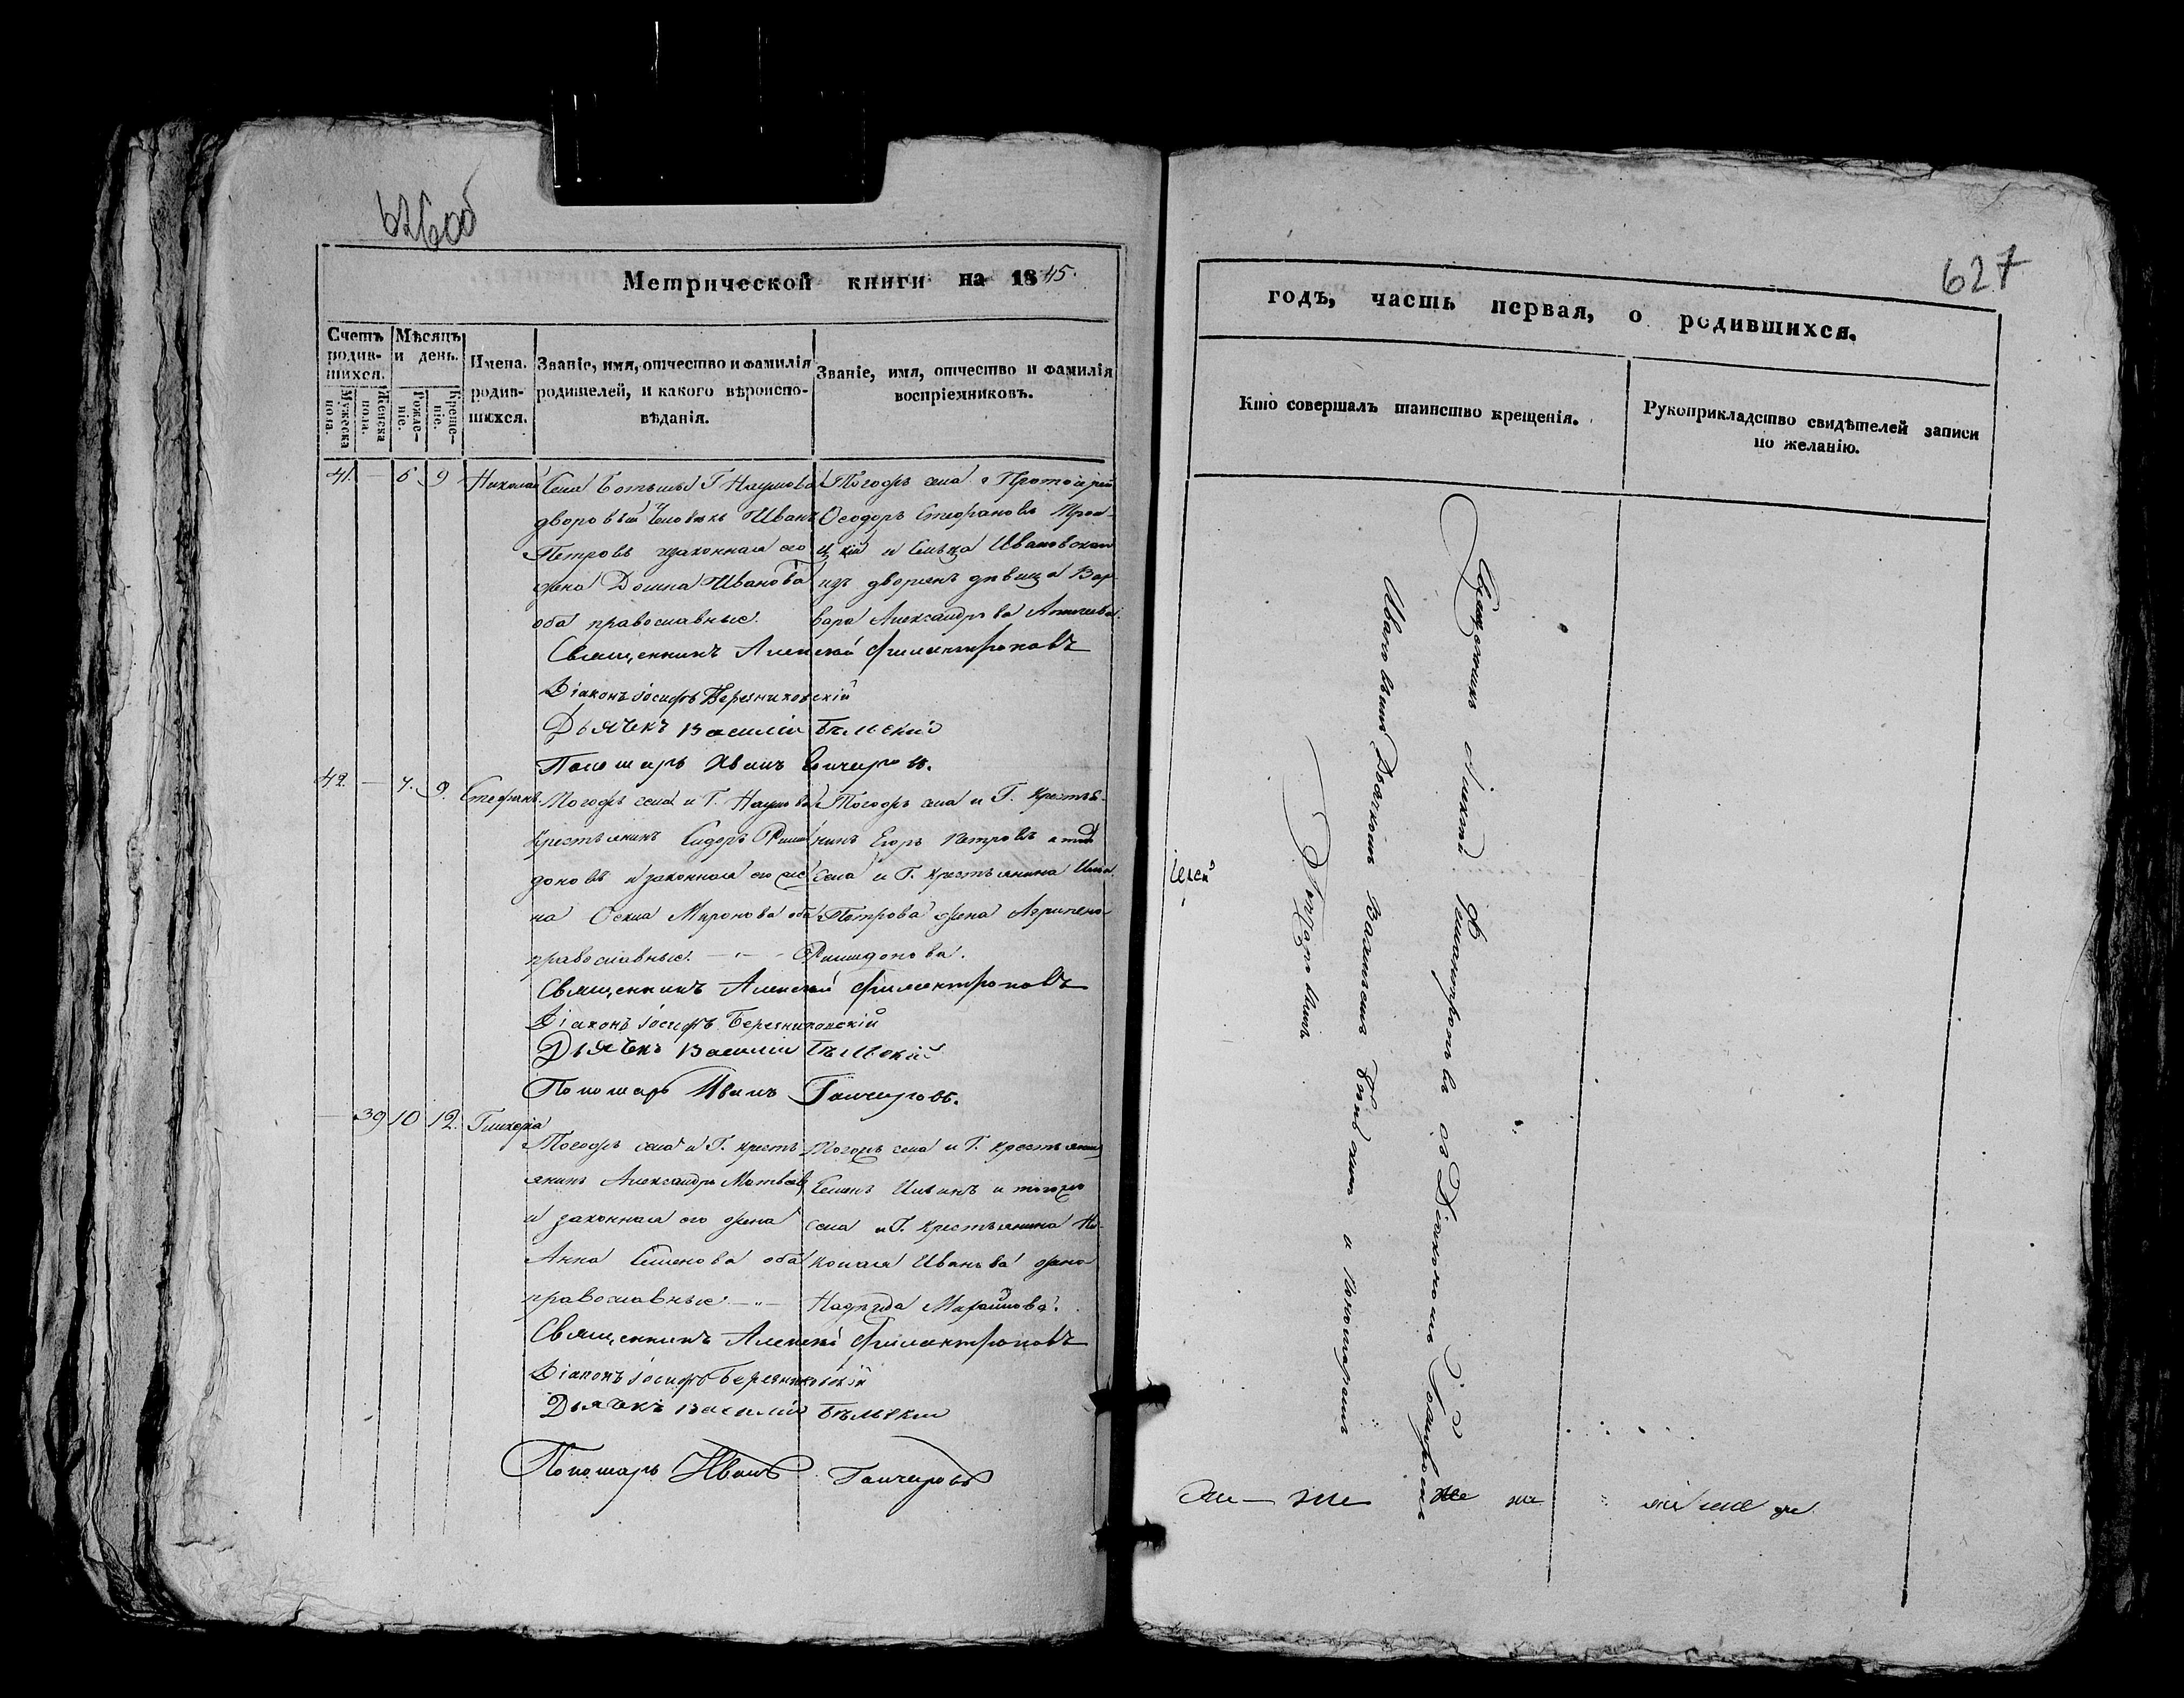 626об
Метрической книги на 1845.
Счетъ родив-шихся.
Мѣсяцъ и день.
Имена родив-шихся.
Званіе, имя, отчество и фамилія родителей, и какого вѣроиспо-вѣданія.
Званіе, имя, отчество и фамилія воспріемниковъ.
Мужеска пола.
Женска пола.
Рожде-ніе.
Креще-ніе.
41. — 5 9 Николай
Села Г Наумова
дворовый человѣкъ Иванъ
Петровъ и законная его
жена Домна Иванова
оба православные.
Тогожъ села Протоіерей
Ѳеодоръ Стефановъ
и Сельца Ивановскаго
изъ дворянъ дѣвица Вар-
вара Александрова
Священникъ Алексей Филантроповъ
Діаконъ Іосифъ Березниковскій
Дьячекъ Василій Бѣльскій
Пономарь Иванъ
42. — 7. 9. Стефанъ.
Тогожъ села и Г. Наумова
Крестьянинъ Сидоръ Спири-
доновъ и законная его же-
на Мѵронова оба
православные.
Тогожъ села и Г. Крестья-
нинъ Егоръ Петровъ и тогожъ
села и Г. Крестьянина
Петрова жена Агрипена
Спиридонова.
Священникъ Алексей Филантроповъ
Діаконъ Іосифъ Березниковскій
Дьячекъ Василій Бѣльскій
Пономарь Иванъ Гончаровъ.
— 39 10 12. Гликерія
Тогожъ села и Г. кресть-
янинъ Александръ Матвеевъ
и законная его жена
Анна Семенова оба
православные.
Тогожъ села и Г. Крестьянинъ
Семенъ Ильинъ и тогожъ
села и Г. Крестьянина Ни-
колая Иванова жена
Надежда Михаилова.
Священникъ Алексей Филантроповъ
Діаконъ Іосифъ Березниковскій
Дьячекъ Василій Бѣльскій
Пономарь Иванъ Гончаровъ
627
годъ, часть первая, о родившихся.
Кто совершалъ таинство крещенія.
Рукоприкладство свидѣтелей записи по желанію.
Священникъ Алексей Филантроповъ съ Діакономъ Іосифомъ
Дьячкомъ Васильемъ Бѣльскимъ и Пономаремъ